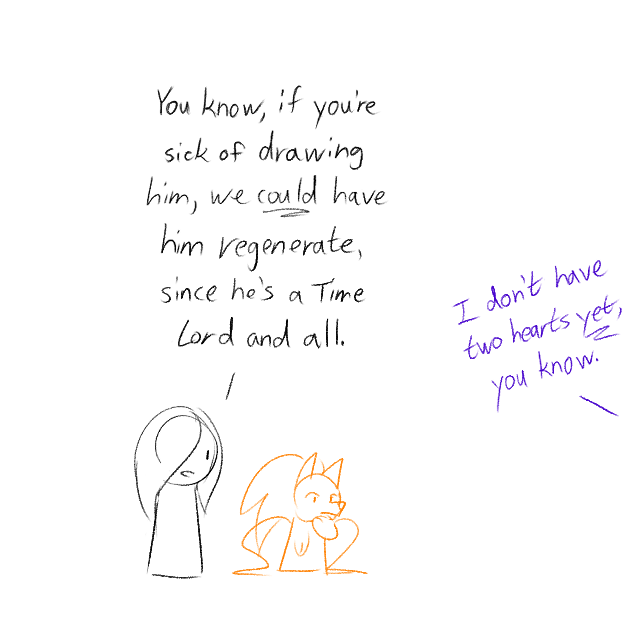 You know, if you're
sick of drawing
him, we could have
him regenerate,
since he's a Time
Lord and all.
I don't have
two hearts yet,
you know.